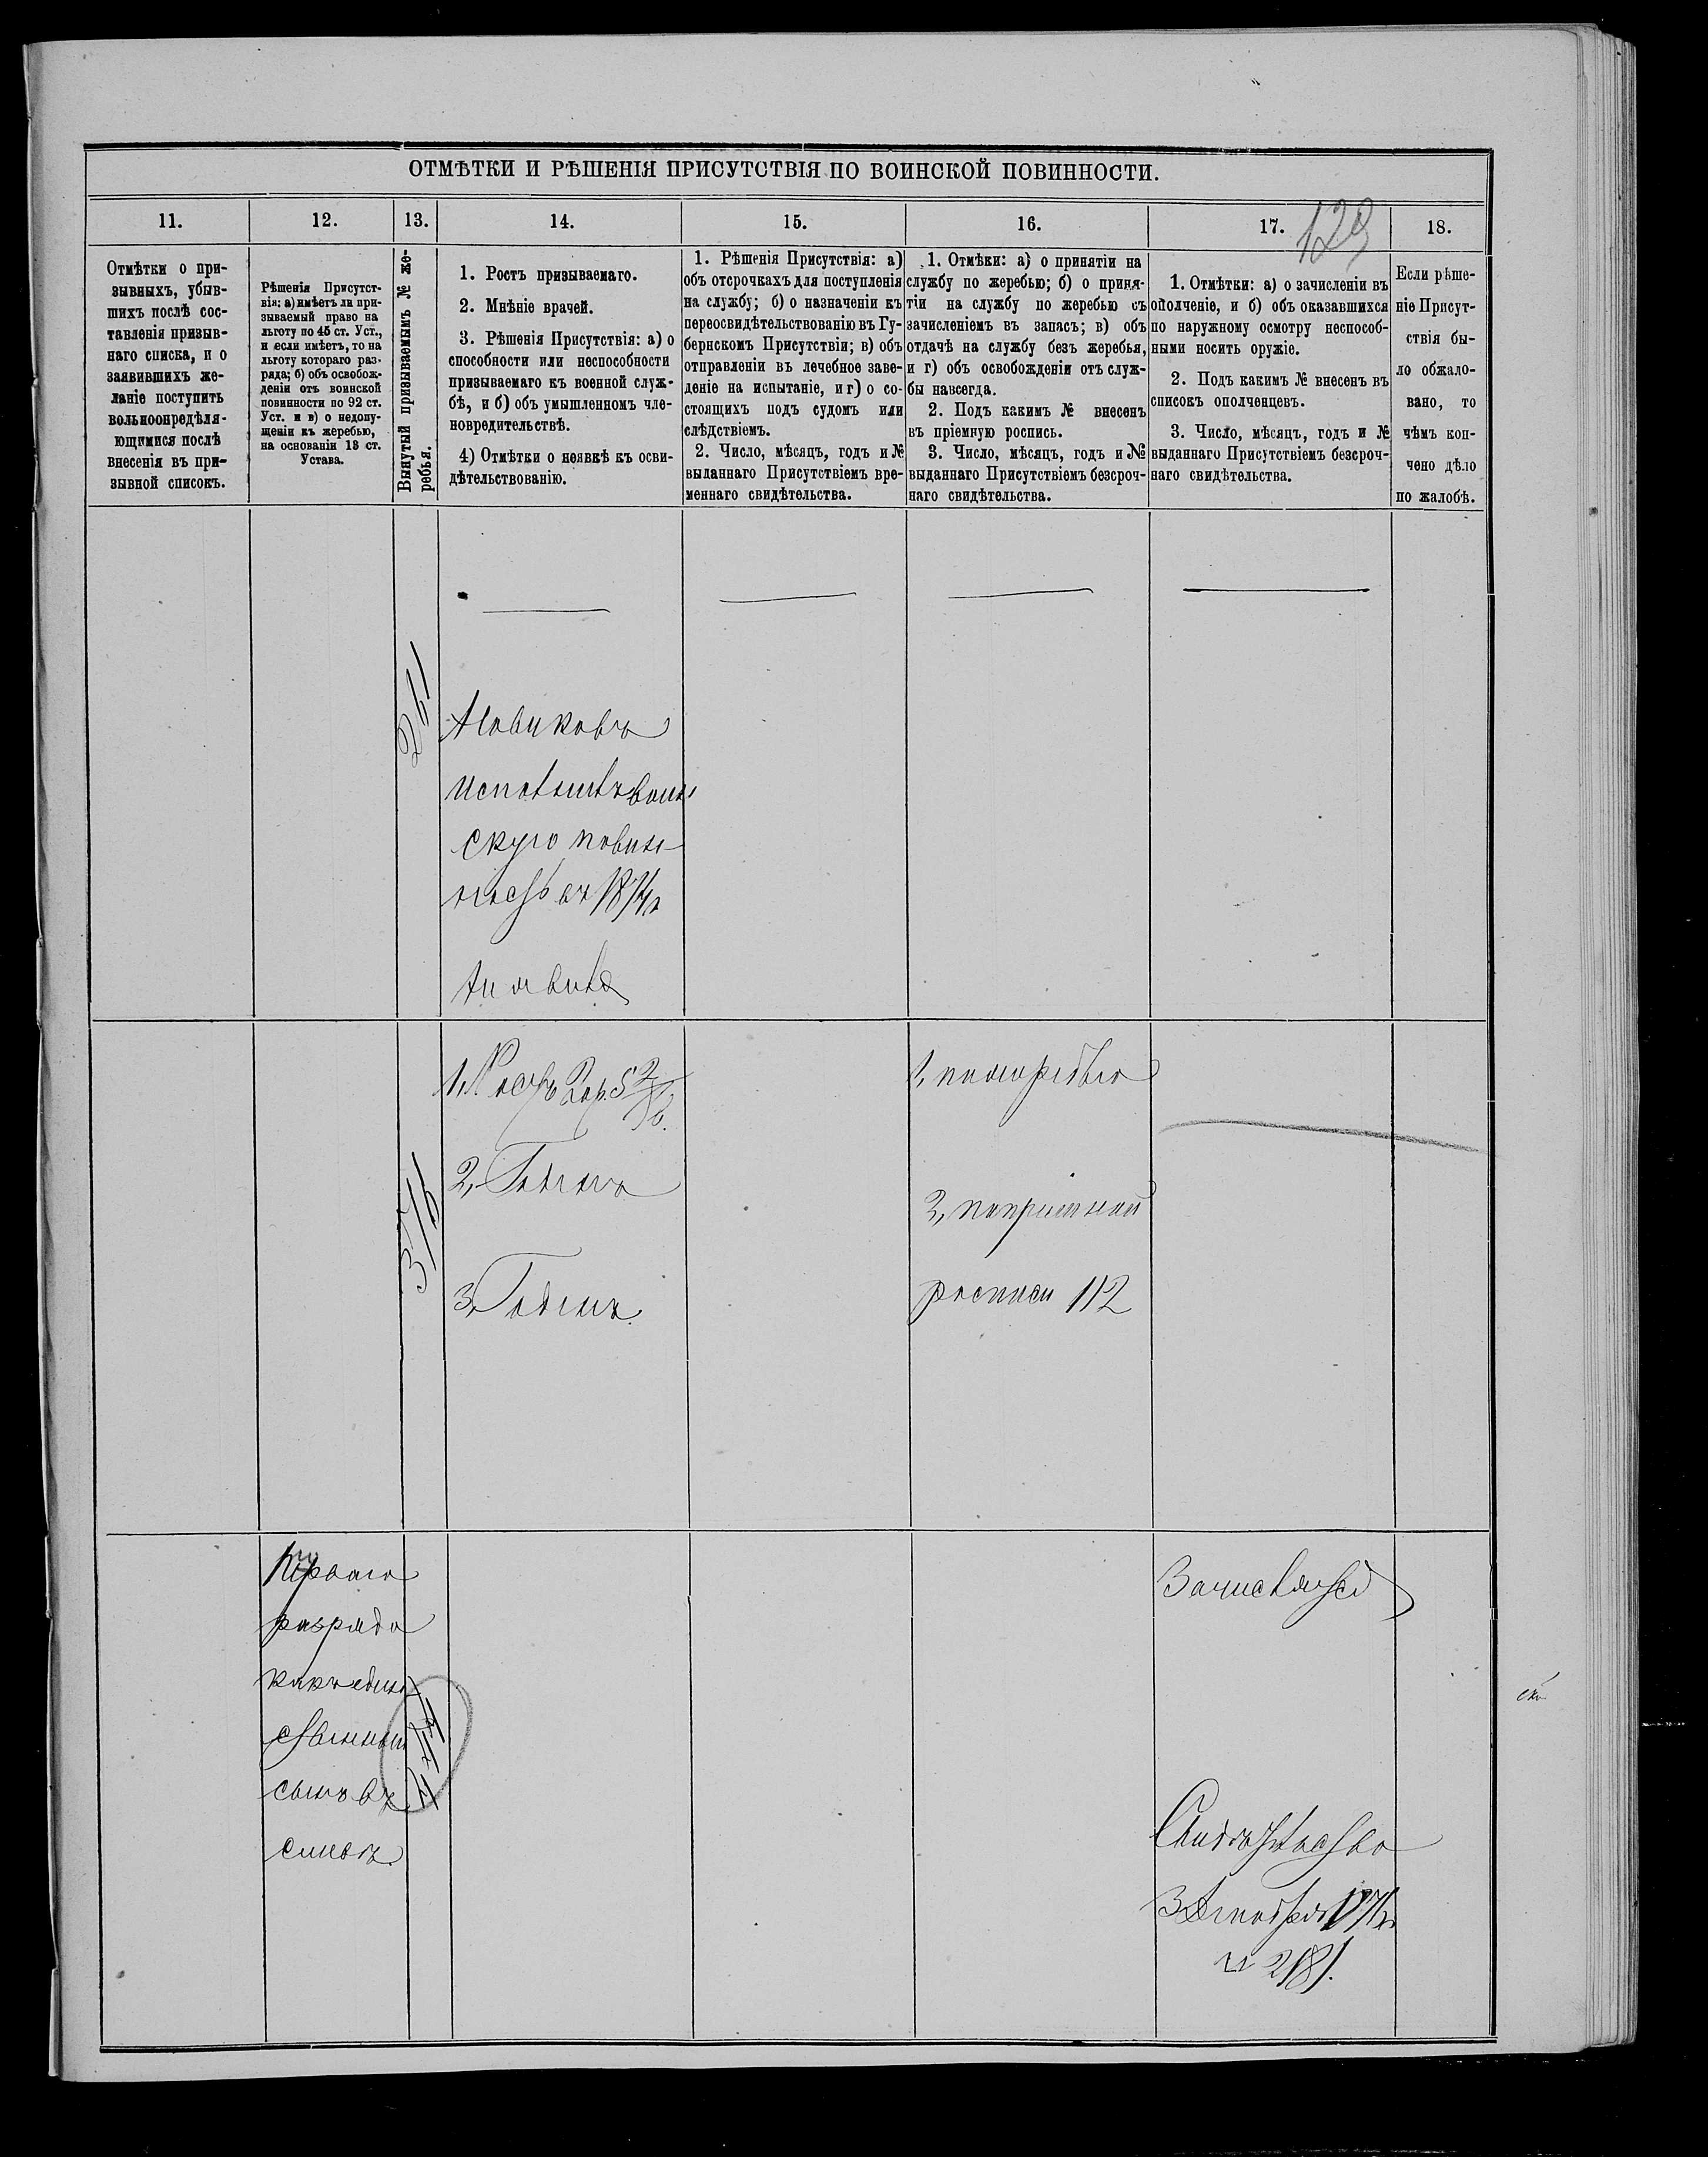 ОТМѢТКИ И РѢШЕНІЯ ПРИСУТСТВІЯ ПО ВОИНСКОЙ ПОВИННОСТИ.
129
11.
Отмѣтки о при-
зывныхъ, убыв-
шихъ послѣ сос-
тавленія призыв-
наго списка, и о
заявившихъ же-
ланіе поступить
вольноопредѣля-
ющимися послѣ
внесенія въ при-
зывной списокъ.
12.
Рѣшенія Присутст-
вія: а) имѣетъ ли при-
зываемый право на
льготу по 45 ст. Уст.,
и если имѣетъ, то на
льготу котораго раз-
ряда; б) объ освобож-
деніи отъ воинской
повинности по 92 ст.
Уст. и в) о недопу-
щеніи къ жеребью,
на основаніи 13 ст.
Устава.
13.
Вынутый призываемымъ № же-
ребья.
14.
1. Ростъ призываемаго.
2. Мнѣніе врачей.
3. Рѣшенія Присутствія: а) о
способности или неспособности
призываемаго къ военной служ-
бѣ, и б) объ умышленномъ чле-
новредительствѣ.
4) Отмѣтки о неявкѣ къ осви-
дѣтельствованію.
15.
1. Рѣшенія Присутствія: а)
объ отсрочкахъ для поступленія
на службу; б) о назначеніи къ
переосвидѣтельствованію въ Гу-
бернскомъ Присутствіи; в) объ
отправленіи въ лечебное заве-
деніе на испытаніе, и г) о со-
стоящихъ подъ судомъ или
слѣдствіемъ.
2. Число, мѣсяцъ, годъ и №
выданнаго Присутствіемъ вре-
меннаго свидѣтельства.
16.
1. Отмѣки: а) о принятіи на
службу по жеребью; б) о приня-
тіи на службу по жеребью съ
зачисленіемъ въ запасъ; в) объ
отдачѣ на службу безъ жеребья,
и г) объ освобожденіи отъ служ-
бы навсегда.
2. Подъ какимъ № внесенъ
въ пріемную роспись.
3. Число, мѣсяцъ, годъ и №
выданнаго Присутствіемъ безсроч-
наго свидѣтельства.
17.
1. Отмѣтки: а) о зачисленіи въ
ополченіе, и б) объ оказавшихся
по наружному осмотру неспособ-
ными носить оружіе.
2. Подъ какимъ № внесенъ въ
списокъ ополченцевъ.
3. Число, мѣсяцъ, годъ и №
выданнаго Присутствіемъ безсроч-
наго свидѣтельства.
18.
Если рѣше-
ніе Присут-
ствія бы-
ло обжало-
вано, то
чѣмъ кон-
чено дѣло
по жалобѣ.
Новиковъ
воин
скую повин
ность въ 1874 г
1, Ростъ 2 ар. 5 2/8 в.
2, Годенъ
3, Годенъ.
1, по жеребью
2, по приемной
росписи 112
376
Перваго
разряда
какъ един
ственный
сынъ въ
семьѣ.
Зачисляется
Свидѣтельство
3 Декабря 1874 г
№ 2181.